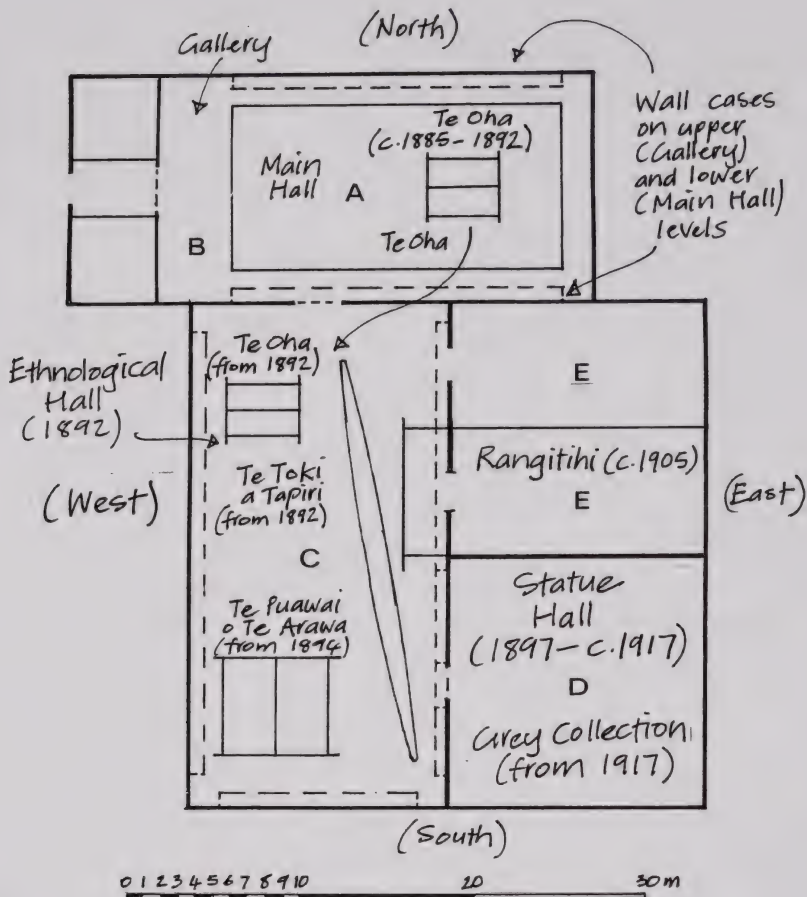 (North)
Gallery
Wall cases
on upper
(Gallery)
and lower
(Main Hall)
levels
Te Oha
(c.1885-1892)
Main
Hall
A
Te Oha
B
Te Oha
(from 1892)
Ethnological
Hall
(1892)
(West)
Te Toki
a Tapiri
(from 1892)
C
Te Puawai
o Te Arawa
(from 1894)
E
Rangitihi (c.1905)
E
(East)
Statue
Hall
(1897-c.1917)
D
Grey Collection
(from 1917)
(South)
0 1 2 3 4 5 6 7 8 9 10 20 30 m